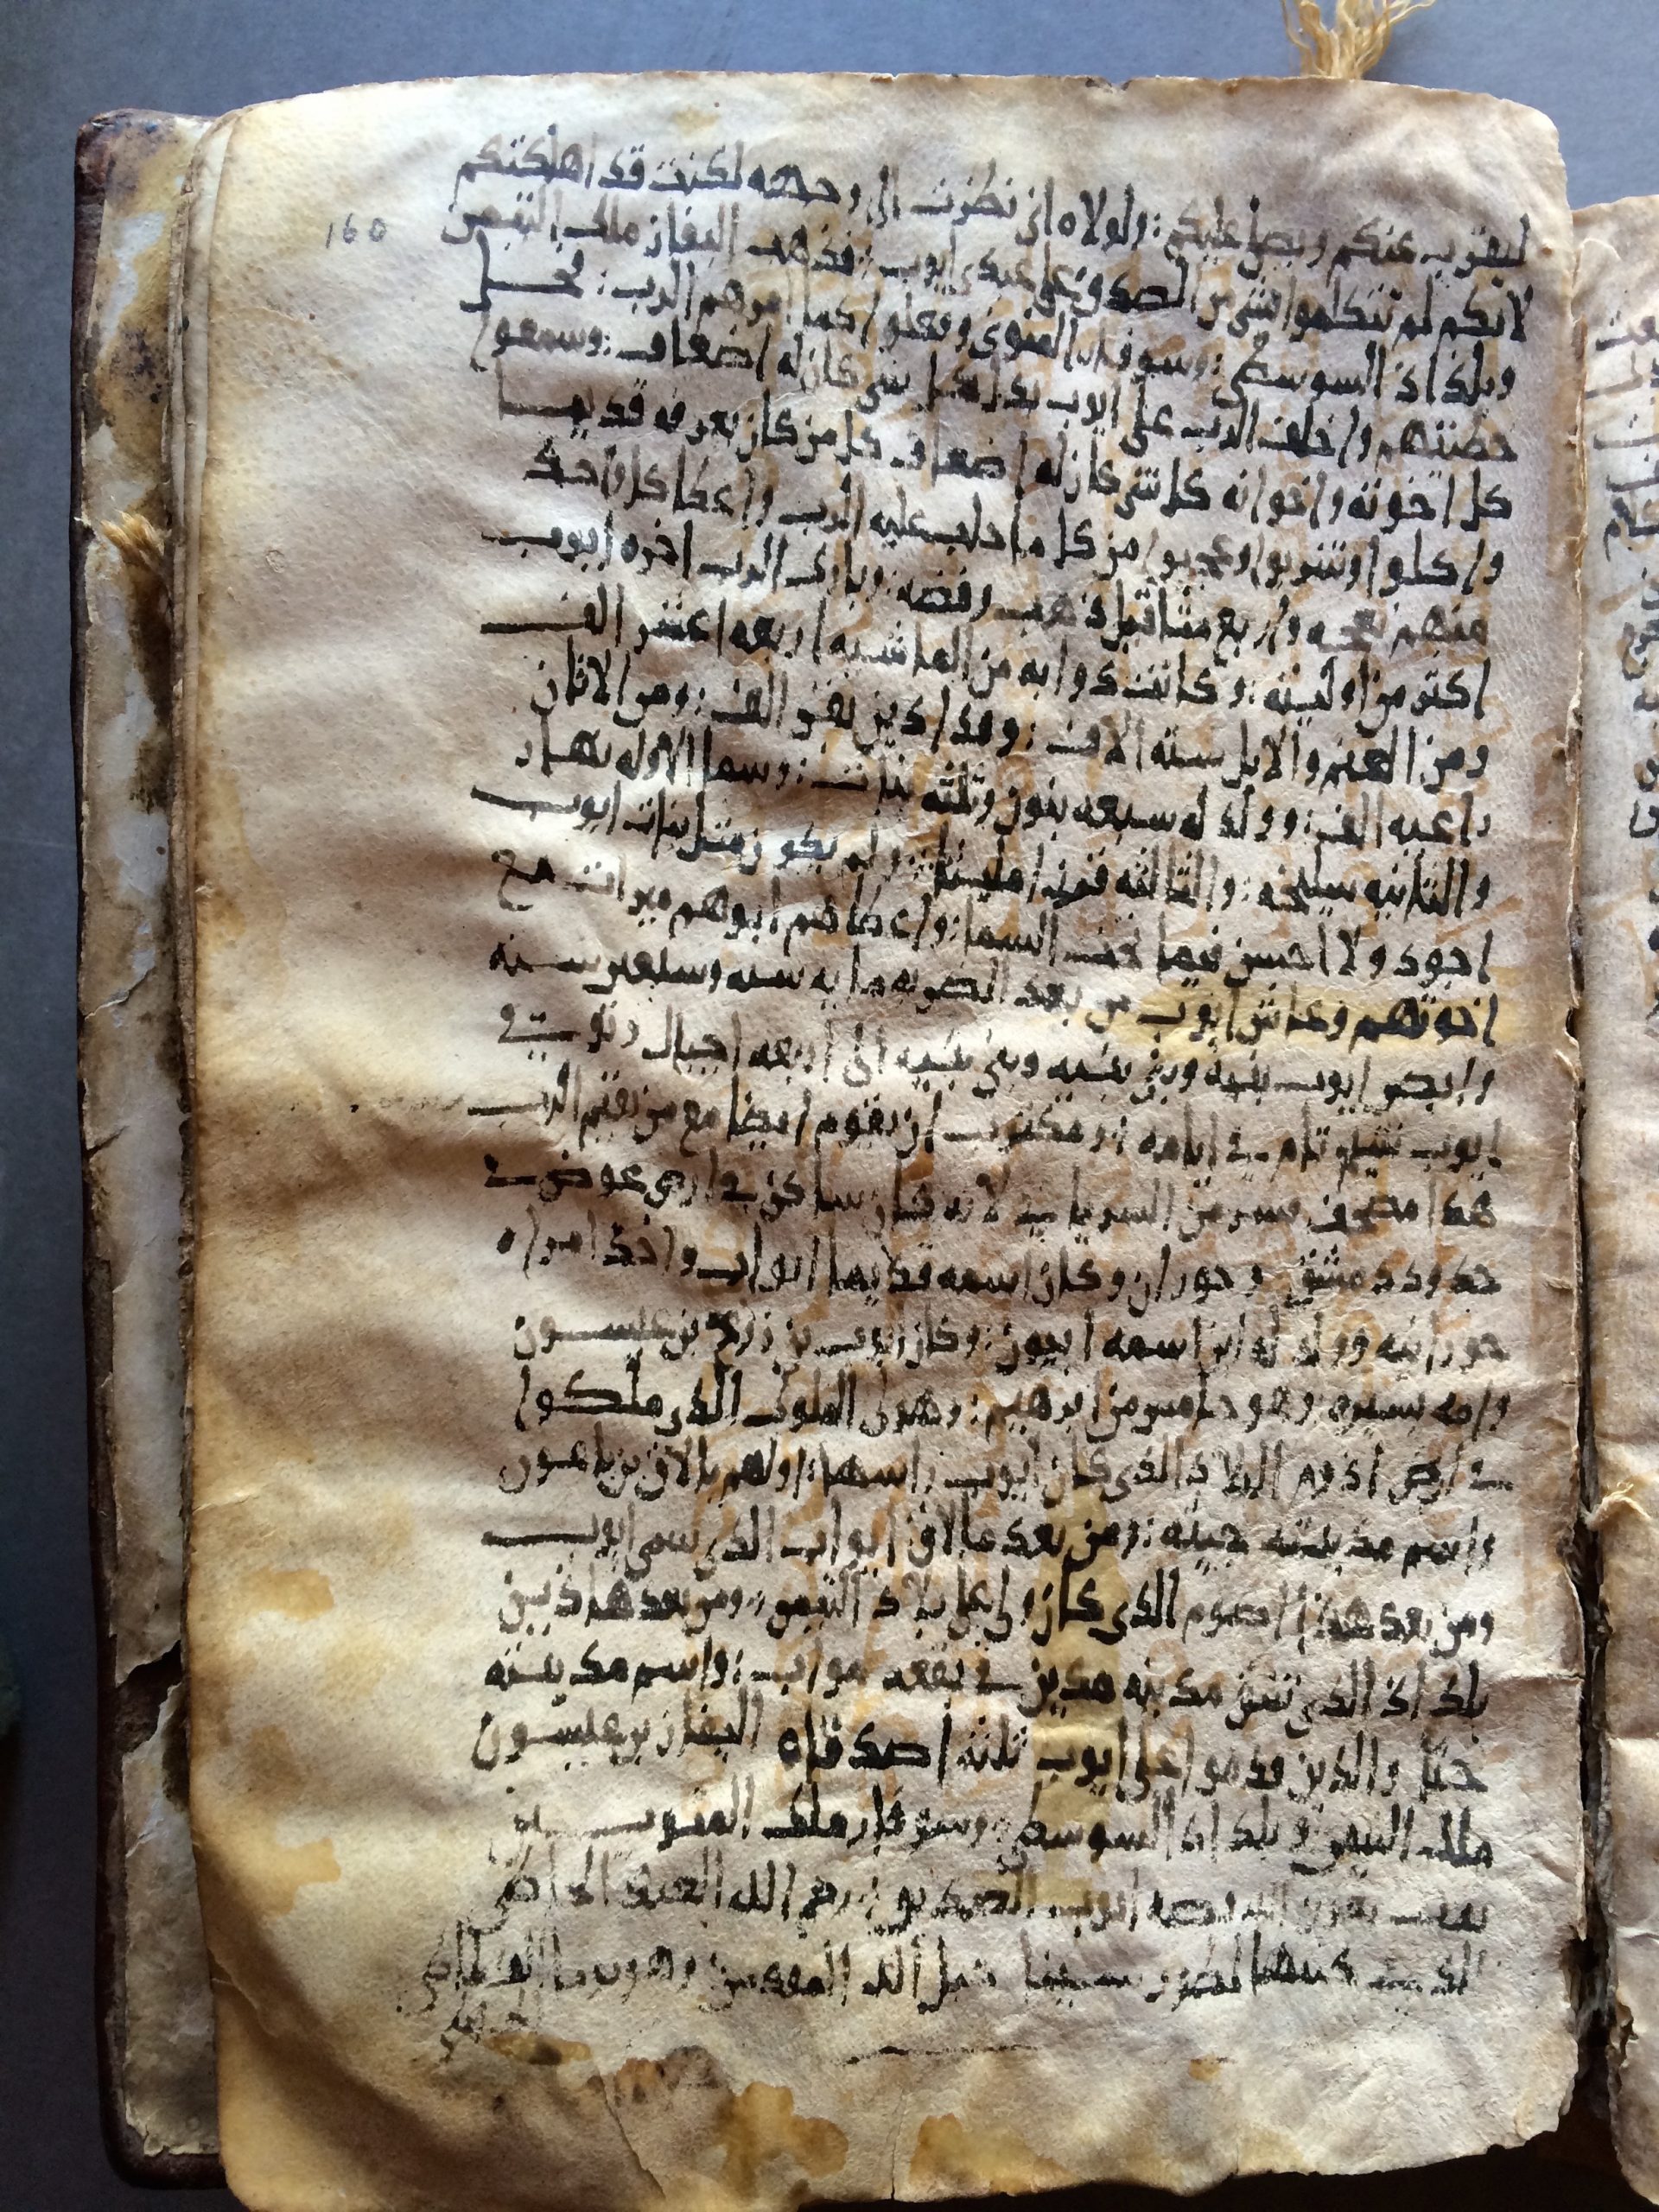 160
ليقرب عنكم ويصلي عليكم؛ ولولا اني نظرت الى وجهه لكنت قد اهلكتكم
لانكم لم تتكلموا شي من الصدق على عبدي ايوب؛ فذهب اليفاز ملك التيمن
وبلداد السوسطي؛ وسوفار وفعلوا كما امرهم الرب؛ فحل
خطيتهم واخلف الرب على ايوب بدل كل شي كان له اضعاف؛ وسمعوا
كل اخوته واخواته كل شي كان له اضعاف كل من كان يعرفه قديما
واكلوا وشربوا وعجبوا من كل ما جلب عليه الرب واعطا كل واحد
منهم نعجه واربع مثاقيل ذهب وفضه؛ وبارك الرب اخره ايوب
اكثر من اوليته؛ وكانت دوابه من الماشيه اربعه اعشر الف
ومن الغنم والابل سته الاف؛ وفدادين بقر الف؛ ومن الاتان
راعيه الف؛ وولد له سبعه بنون وثلثه بنات؛ وسما الاوله نهار
والثانيه سليخه؛ والثالثه قرن ولم يكون مثل بنات ايوب
اجود ولا احسن فيما تحت السما؛ واعطاهم ابوهم ميراث مع
اخوتهم وعاش ايوب من بعد الضربه مايه سنه وسبعين سنه
وابصر ايوب بنيه وبني بنيه وبني بنيه الى اربعه اجيال وتوفي
ايوب شيخ تام في ايامه؛ ومكتوب ان يقوم ايضا مع من يقيم الرب
هذا مصحف من السريانيه لانه كان ساكن في ارض عوض في
حدود دمشق وحوران وكان اسمه قديما ايواب واخذ امراه
حورانيه وولد له ابن اسمه ابيون؛ وكان ايوب بن زرح بن عيسون
وامه بسوره؛ وهو خامس من ابرهيم؛ وهولى الملوك الذي ملكوا
في ارض اذوم البلاد الذي كان ايوب راسها؛ اولهم بالاق بن باعون
واسم مدينته جينه؛ ومن بعد بالاق ايواب الذي سمي ايوب
ومن بعد هذا اصوم الذي كان والي على بلاد التيمن؛ ومن بعد هداد بن
بلداد الذي شق مدينه مدين في بقعه مواب؛ واسم مدينته
والذين قدموا على ايوب ثلثه اصدقاه اليفاز بن عيسون
ملك التيمن وبلداد السوسطي؛ وسوفار ملك
تمت بعون الله قصه ايوب الصديق؛ رحم الله العبد الخاطي
الذي كتبها لطور سينا جبل الله المقدس؛